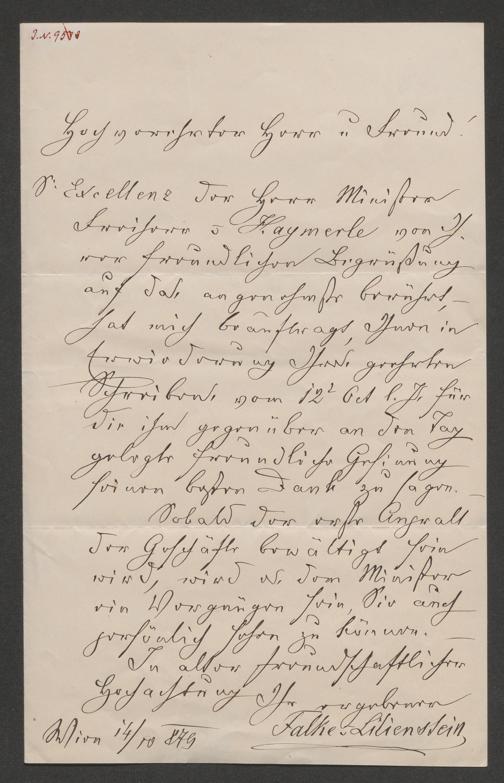 I.N. 95
Hochverehrter Herr u Freund!
Sr. Excellenz der Herr Minister
Freiherr v Haymerle von Ih-
rer freundlichen Begrüßung
auf das angenehmste berührt,
hat mich beauftragt, Ihnen in
Erwiederung Ihres geehrten
Schreibens vom 12t Oct l. J. für
die ihm gegenüber an den Tag
gelegte freundliche Gesinnung
seinen besten Dank zu sagen. –
Sobald der erste Anprall
der Geschäfte bewältigt sein
wird, wird es dem Minister
ein Vergnügen sein, Sie auch
persönlich sehen zu können. –
In alter freundschaftlicher
Hochachtung Ihr ergebener
Wien 14/10 879 Falke v. Lilienstein